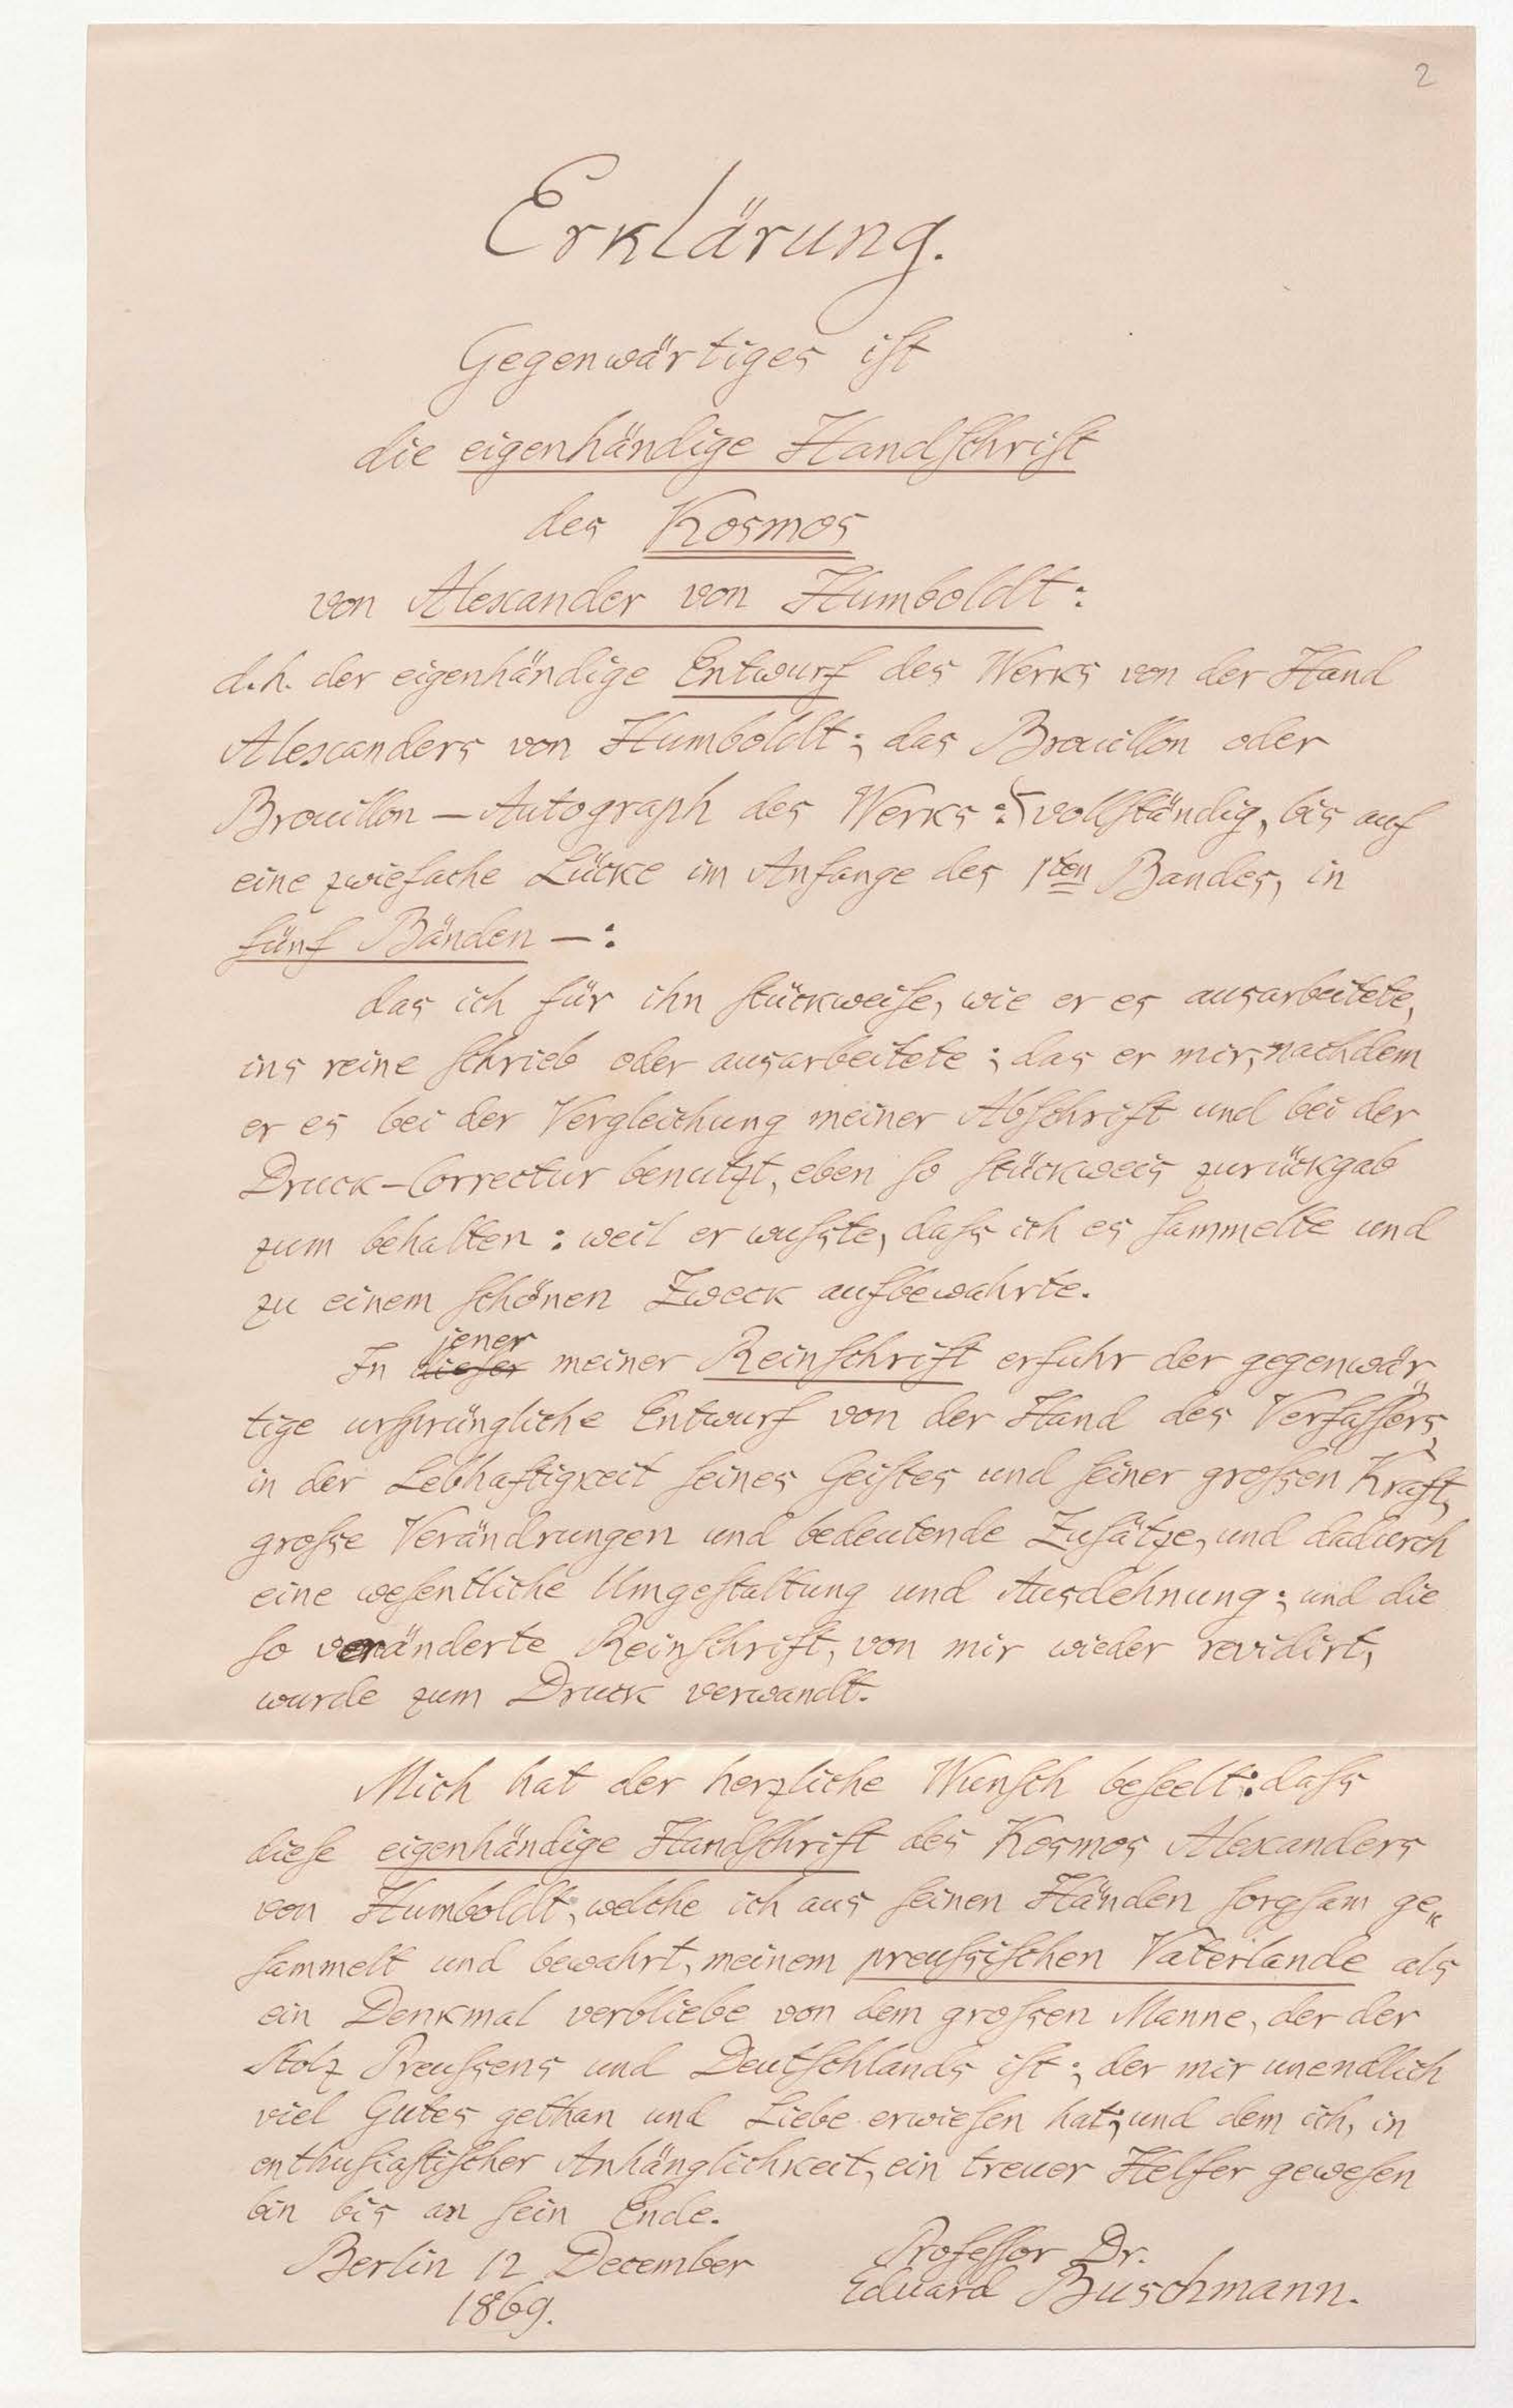 2
Erklärung.
Gegenwärtiges ist
die eigenhändige Handschrift
des Kosmos
von Alexander von Humboldt:
d.h. der eigenhändige Entwurf des Werks von der Hand
Alexanders von Humboldt; das Brouillon oder
Brouillon–Autograph des Werks: vollständig, bis auf
eine zwiefache Lücke im Anfange des 1ten Bandes, in
fünf Bänden –:
das ich für ihn stückweise, wie er es ausarbeitete,
ins reine schrieb oder ausarbeitete; das er mir, nachdem
er es bei der Vergleichung meiner Abschrift und bei der
Druck-Correctur benutzt, eben so stückweis zurückgab
zum behalten: weil er wußte, daß ich es sammelte und
zu einem schönen Zweck aufbewahrte.
In dieser jener meiner Reinschrift erfuhr der gegenwär„
tige ursprüngliche Entwurf von der Hand des Verfassers,
in der Lebhaftigkeit seines Geistes und seiner großen Kraft,
große Verändrungen und bedeutende Zusätze, und dadurch
eine wesentliche Umgestaltung und Ausdehnung; und die
so veränderte Reinschrift, von mir wieder revidirt,
wurde zum Druck verwandt.
Mich hat der herzliche Wunsch beseelt: daß
diese eigenhändige Handschrift des Kosmos Alexanders
von Humboldt, welche ich aus seinen Händen sorgsam ge„
sammelt und bewahrt, meinem preußischen Vaterlande als
ein Denkmal verbliebe von dem großen Manne, der der
Stolz Preußens und Deutschlands ist; der mir unendlich
viel Gutes gethan und Liebe erwiesen hat; und dem ich, in
enthusiastischer Anhänglichkeit, ein treuer Helfer gewesen
bin bis an sein Ende.
Berlin 12 December
1869.
Professor Dr.
Eduard Buschmann.